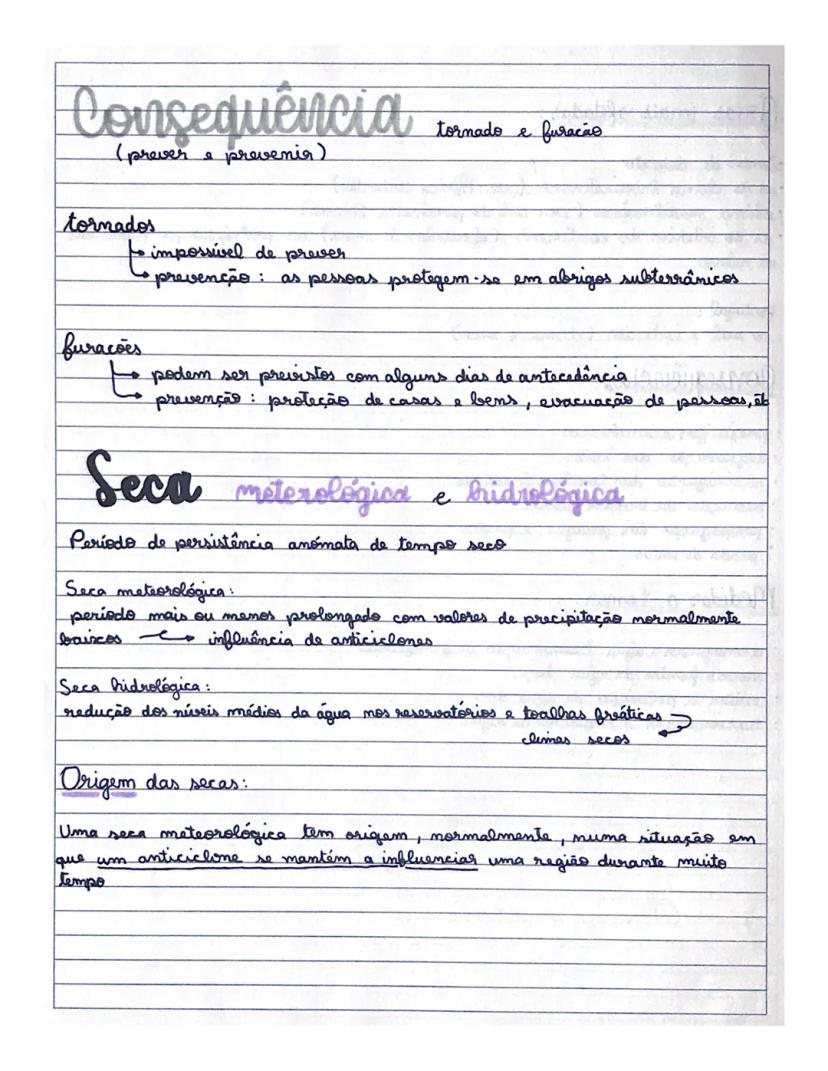 Consequência tornado e furacão
(prever e prevenir)
tornados
impossível de prever
prevenção : as pessoas protegem-se em abrigos subterrânicos
furacões
podem ser previstos com alguns dias de antecedência
prevenção : proteção de casas e bens, evacuação de pessoas,
Seca meterológica e hidrológica
Período de persistência anómata de tempo seco
Seca meteorológica:
período mais ou menos prolongado com valores de precipitação normalmente
baixos influência de anticiclones
Seca hidrológica:
redução dos níveis médios da água nos reservatórios e toalhas freáticas
climas secos
Origem das secas:
Uma seca meteorológica tem origem, normalmente, numa situação em
que um anticiclone se mantém a influenciar uma região durante muito
tempo